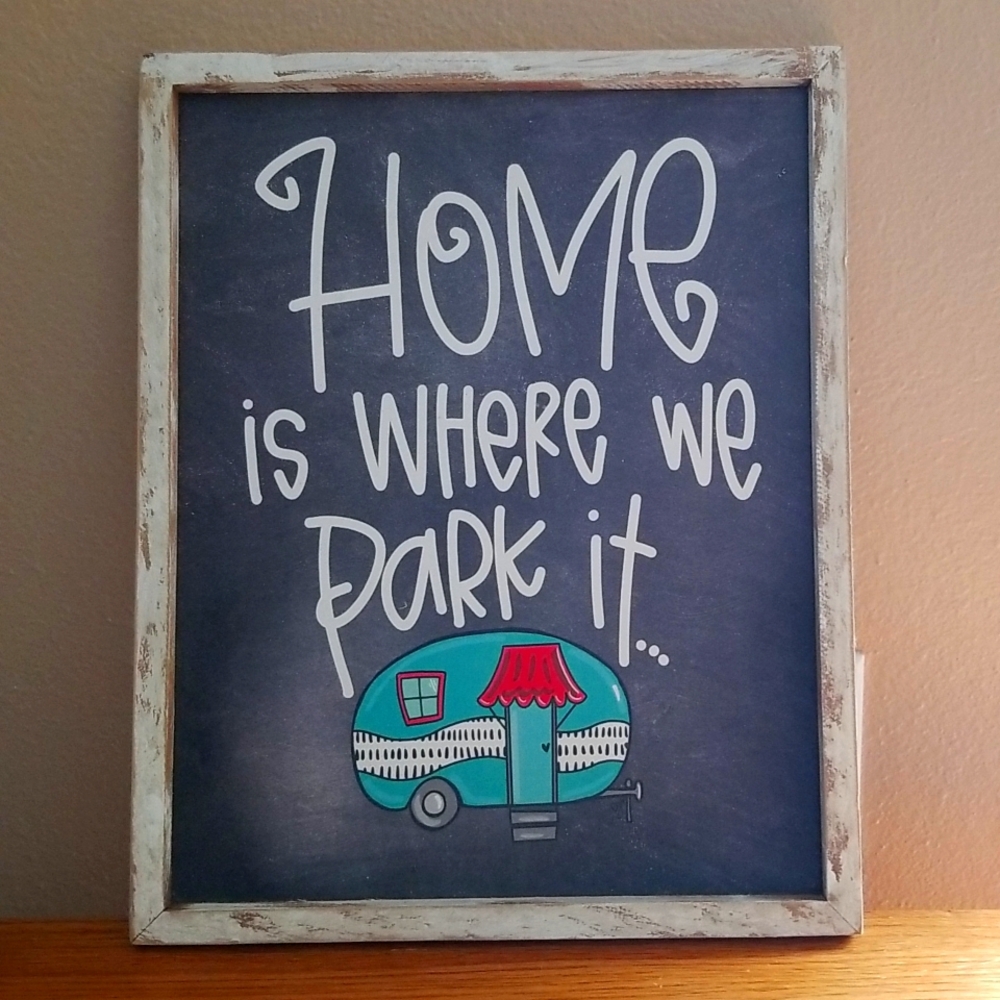 Home
is where we
park it...